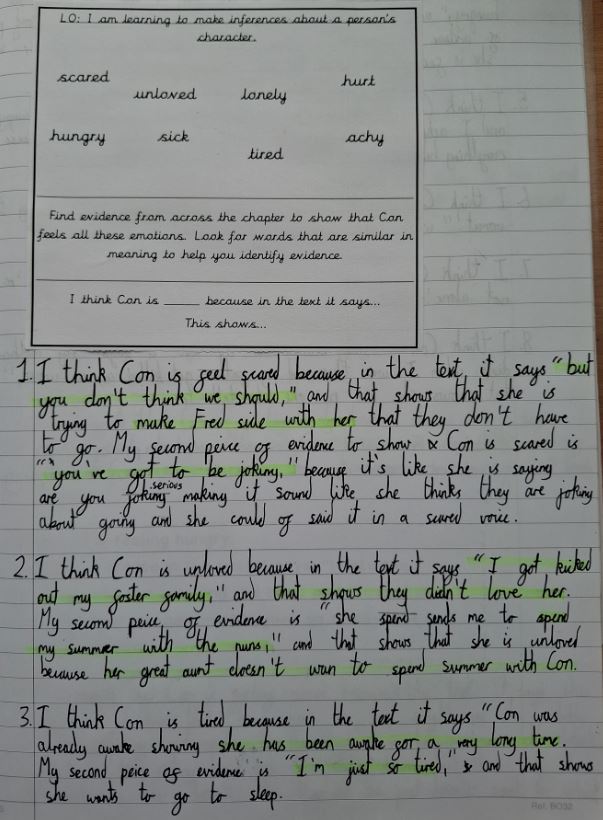 LO: I am learning to make inferences about a person's
character.
scared
unloved
lonely
hurt
hungry
sick
tired
achy
Find evidence from across the chapter to show that Con
feels all these emotions. Look for words that are similar in
meaning to help you identify evidence.
I think Con is _____ because in the text it says...
This shows...
1. I think Con is feel scared because in the text it says "but
you don't think we should," and that shows that she is
trying to make Fred side with her that they don't have
to go. My second peice of evidence to show Con is scared is
"you've got to be joking," because it's like she is saying
are you joking serious making it sound like she thinks they are joking
about going and she could of said it in a scared voice.
2. I think Con is unloved because in the text it says "I got kicked
out my foster family," and that shows they didn't love her.
My second peice of evidence is "she spend sends me to spend
my summer with the nuns," and that shows that she is unloved
because her great aunt doesn't wan to spend summer with Con.
3. I think Con is tired because in the text it says "Con was
already awake showing she has been awake for a very long time.
My second peice of evidence is "I'm just so tired," and that shows
she wants to go to sleep.
Ref: BO32